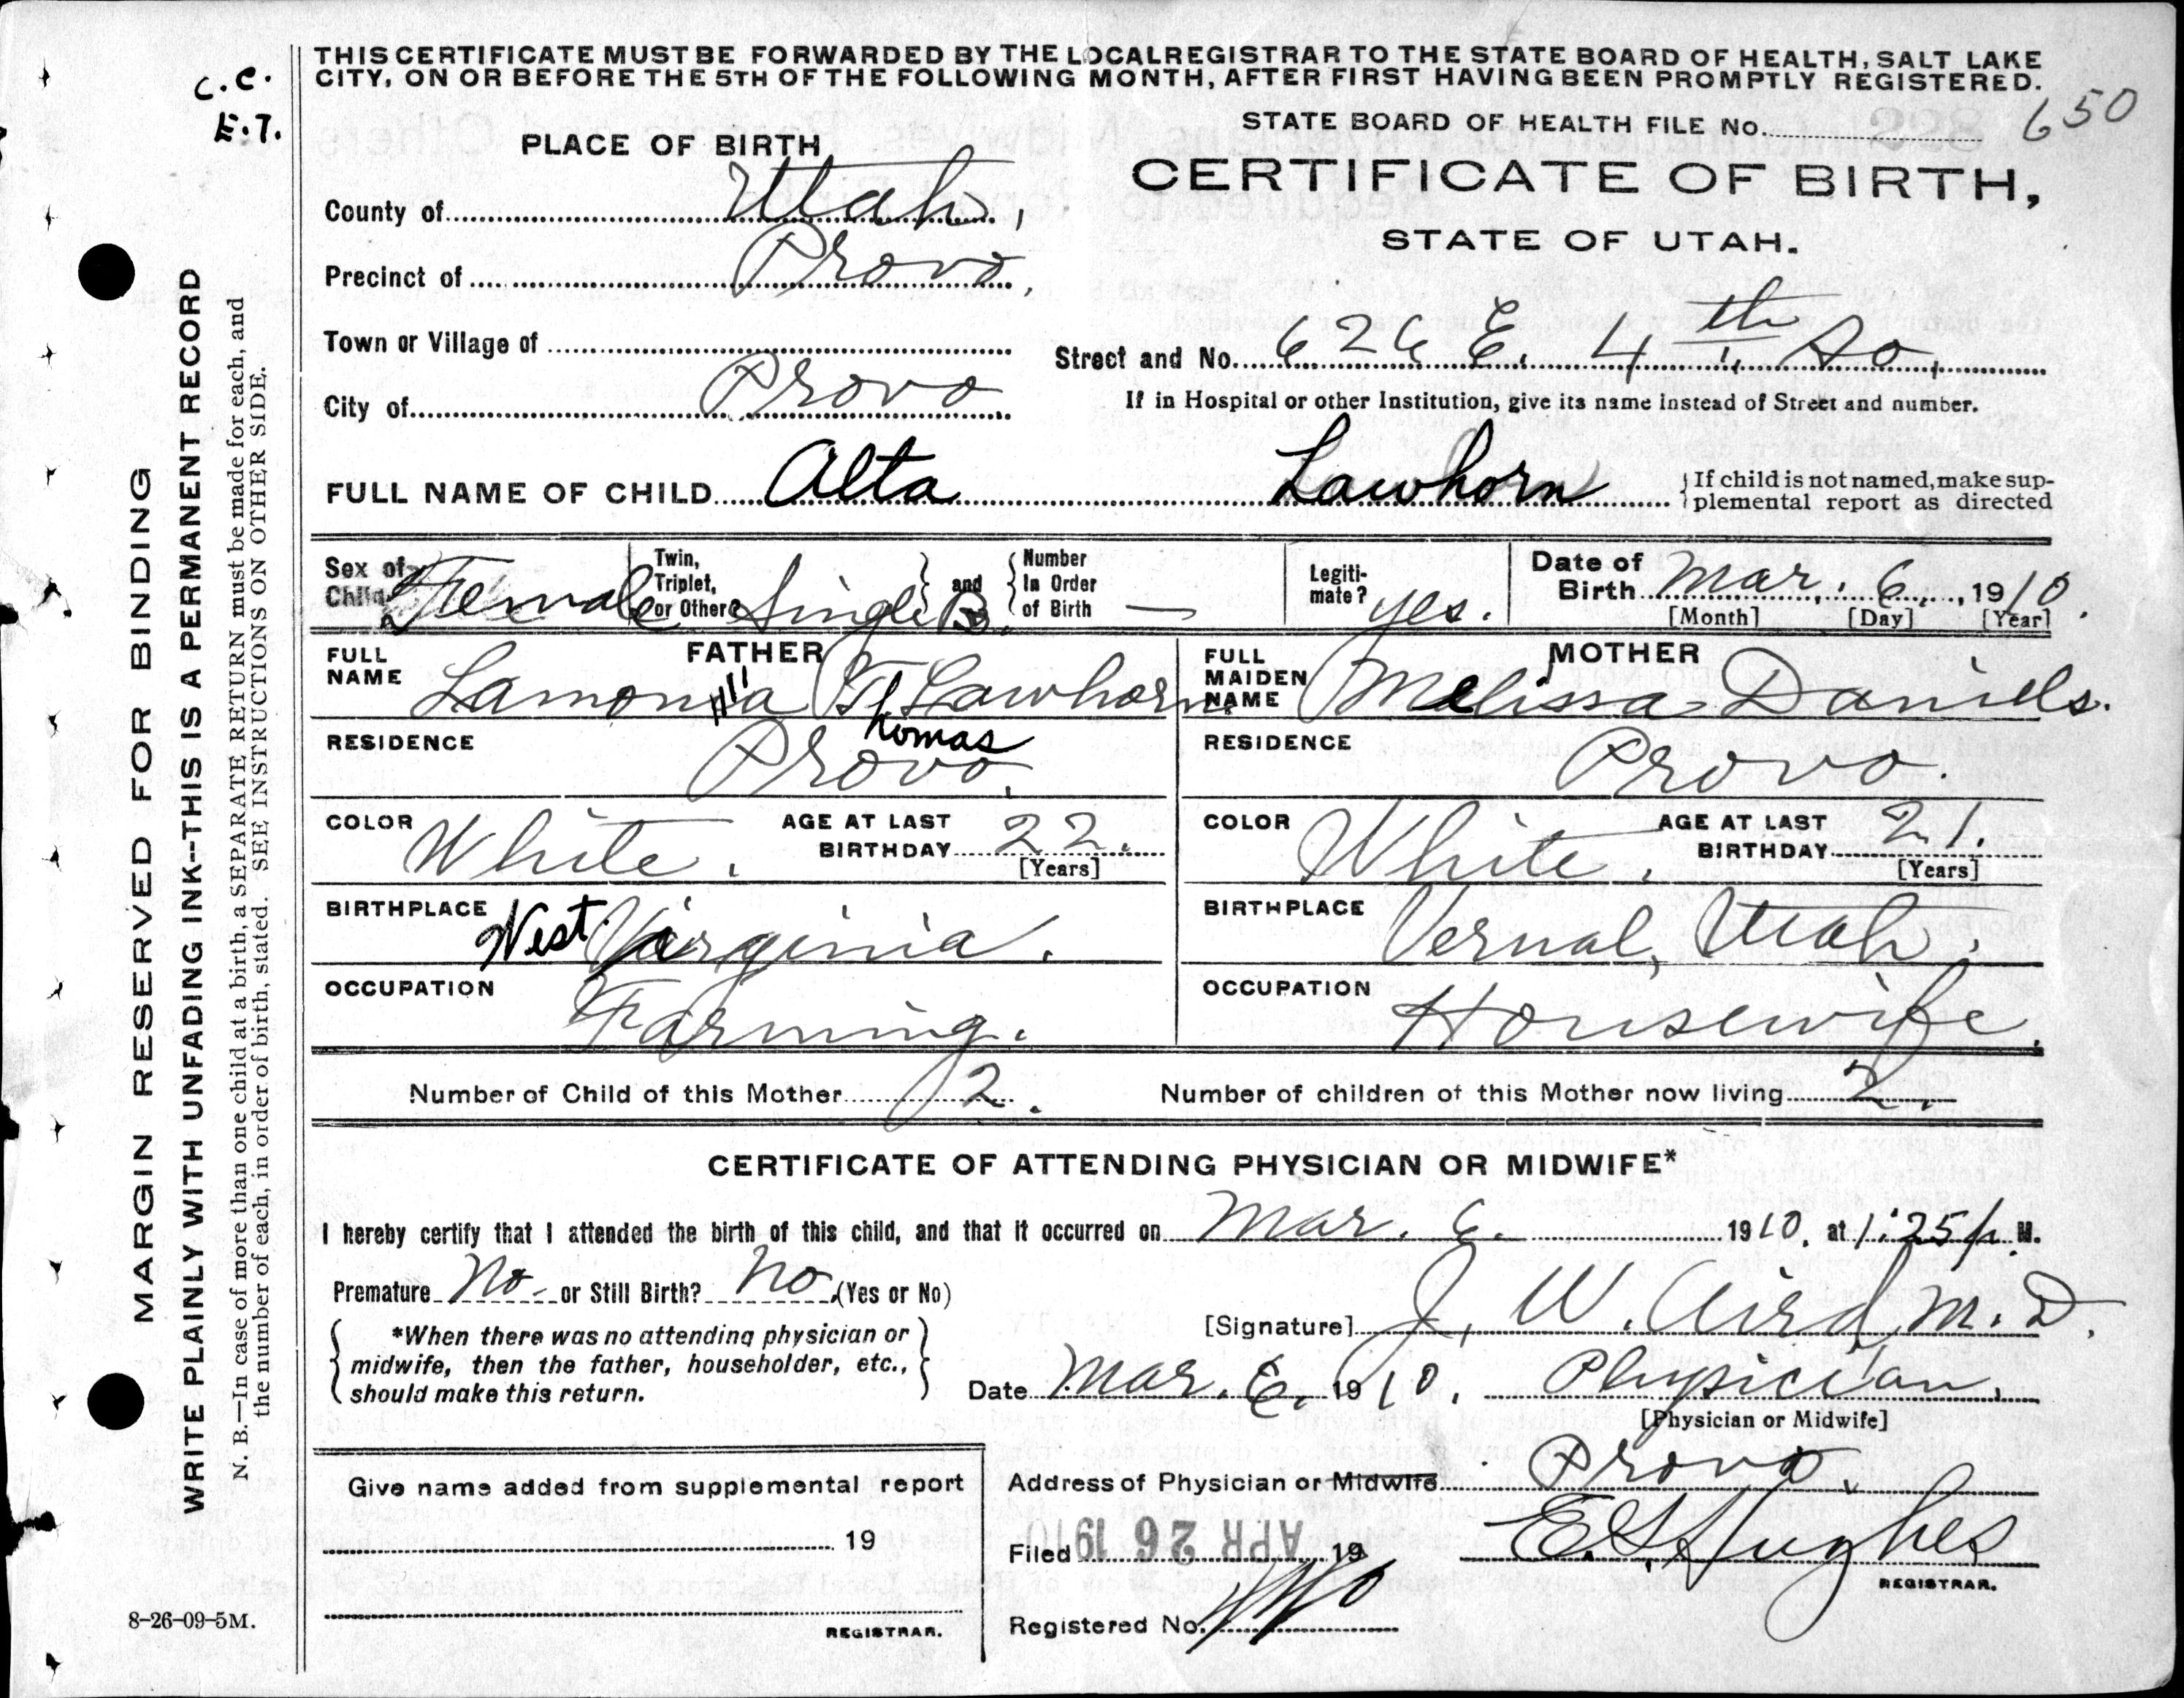 THIS CERTIFICATE MUST BE FORWARDED BY THE LOCAL REGISTRAR TO THE STATE BOARD OF HEALTH, SALT LAKE
CITY, ON OR BEFORE THE 5TH OF THE FOLLOWING MONTH, AFTER FIRST HAVING BEEN PROMPTLY REGISTERED.
C.C.
E.T.
STATE BOARD OF HEALTH FILE No. 650
PLACE OF BIRTH
CERTIFICATE OF BIRTH,
STATE OF UTAH.
County of Utah,
Precinct of Provo,
Town or Village of
Street and No. 626 E. 4th So,
City of Provo
If in Hospital or other Institution, give its name instead of Street and number.
FULL NAME OF CHILD Alta Lawhorn
If child is not named, make sup-
plemental report as directed
Sex of Child Female
Twin, Triplet, or Other? Single B.
and
Number In Order of Birth —
Legiti-mate? yes.
Date of Birth Mar. 6, 1910.
[Month] [Day] [Year]
FATHER
FULL NAME Lamonia T. Lawhorn
Thomas
RESIDENCE Provo.
COLOR White.
AGE AT LAST BIRTHDAY 22.
[Years]
BIRTHPLACE West Virginia.
OCCUPATION Farming.
MOTHER
FULL MAIDEN NAME Melissa Daniels.
RESIDENCE Provo.
COLOR White.
AGE AT LAST BIRTHDAY 21.
[Years]
BIRTHPLACE Vernal, Utah.
OCCUPATION Housewife.
Number of Child of this Mother 2.
Number of children of this Mother now living 2.
CERTIFICATE OF ATTENDING PHYSICIAN OR MIDWIFE*
I hereby certify that I attended the birth of this child, and that it occurred on Mar. 6. 1910, at 1:25 p. M.
Premature No or Still Birth? No (Yes or No)
[Signature] J. W. Aird, M. D.
*When there was no attending physician or
midwife, then the father, householder, etc.,
should make this return.
Date Mar. 6. 1910. Physician,
[Physician or Midwife]
Give name added from supplemental report
19
REGISTRAR.
Address of Physician or Midwife Provo.
Filed APR 26 1910 19
E. S. Hughes
REGISTRAR.
Registered No.
8-26-09-5M.
MARGIN RESERVED FOR BINDING
WRITE PLAINLY WITH UNFADING INK--THIS IS A PERMANENT RECORD
N. B.—In case of more than one child at a birth, a SEPARATE RETURN must be made for each, and
the number of each, in order of birth, stated. SEE INSTRUCTIONS ON OTHER SIDE.